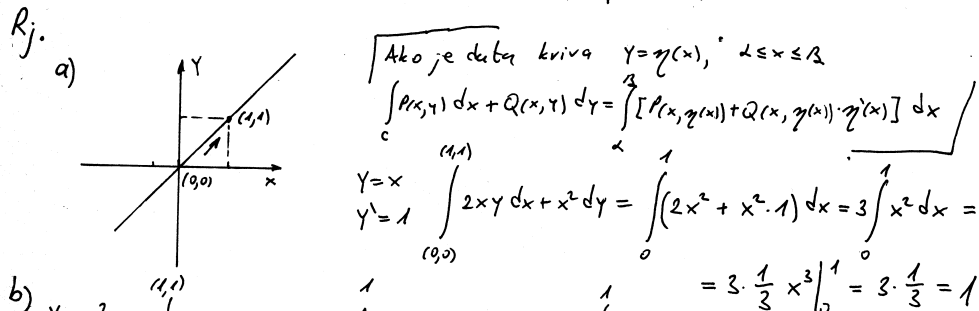 Rj.
a)
Y
(1,1)
(0,0)
x
Ako je data kriva Y=η(x), α≤x≤β
∫_C P(x,y) dx + Q(x,y) dy = ∫_α^β [P(x,η(x))+Q(x,η(x))·η'(x)] dx
Y=x
Y'=1
∫_(0,0)^(1,1) 2xy dx + x² dy = ∫_0^1 (2x² + x²·1) dx = 3∫_0^1 x² dx =
= 3·1/3 x³|_0^1 = 3·1/3 = 1
b)
(1,1)
1
1